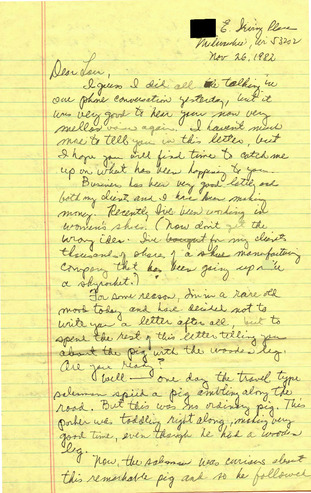 E. Irving Place
Milwaukie, Or 53202
Nov 26, 1982
Dear Lou,
I guess I did all the talking in
our phone conversation yesterday, but it
was very good to hear your now very
mellow voice again. I haven't much
more to tell you in this letter, but
I hope you will find time to catch me
up on what has been happening to you.
Business has been very good lately and
both my clients and I have been making
money. Recently I've been working in
women's shoes. (Now don't get the
wrong idea. I've bought for my clients
thousands of shares of a shoe manufacturing
company that has been going up like
a skyrocket.)
For some reason, I'm in a rare old
mood today and have decided not to
write you a letter after all, but to
spend the rest of this letter telling you
about the pig with the wooden leg.
Are you ready?
Well — one day the travel type
salesman spied a pig ambling along the
road. But this was no ordinary pig. This
porker was toddling right along, making very
good time, even though he had a wooden
leg.
Now, the salesman was curious about
this remarkable pig and so he followed